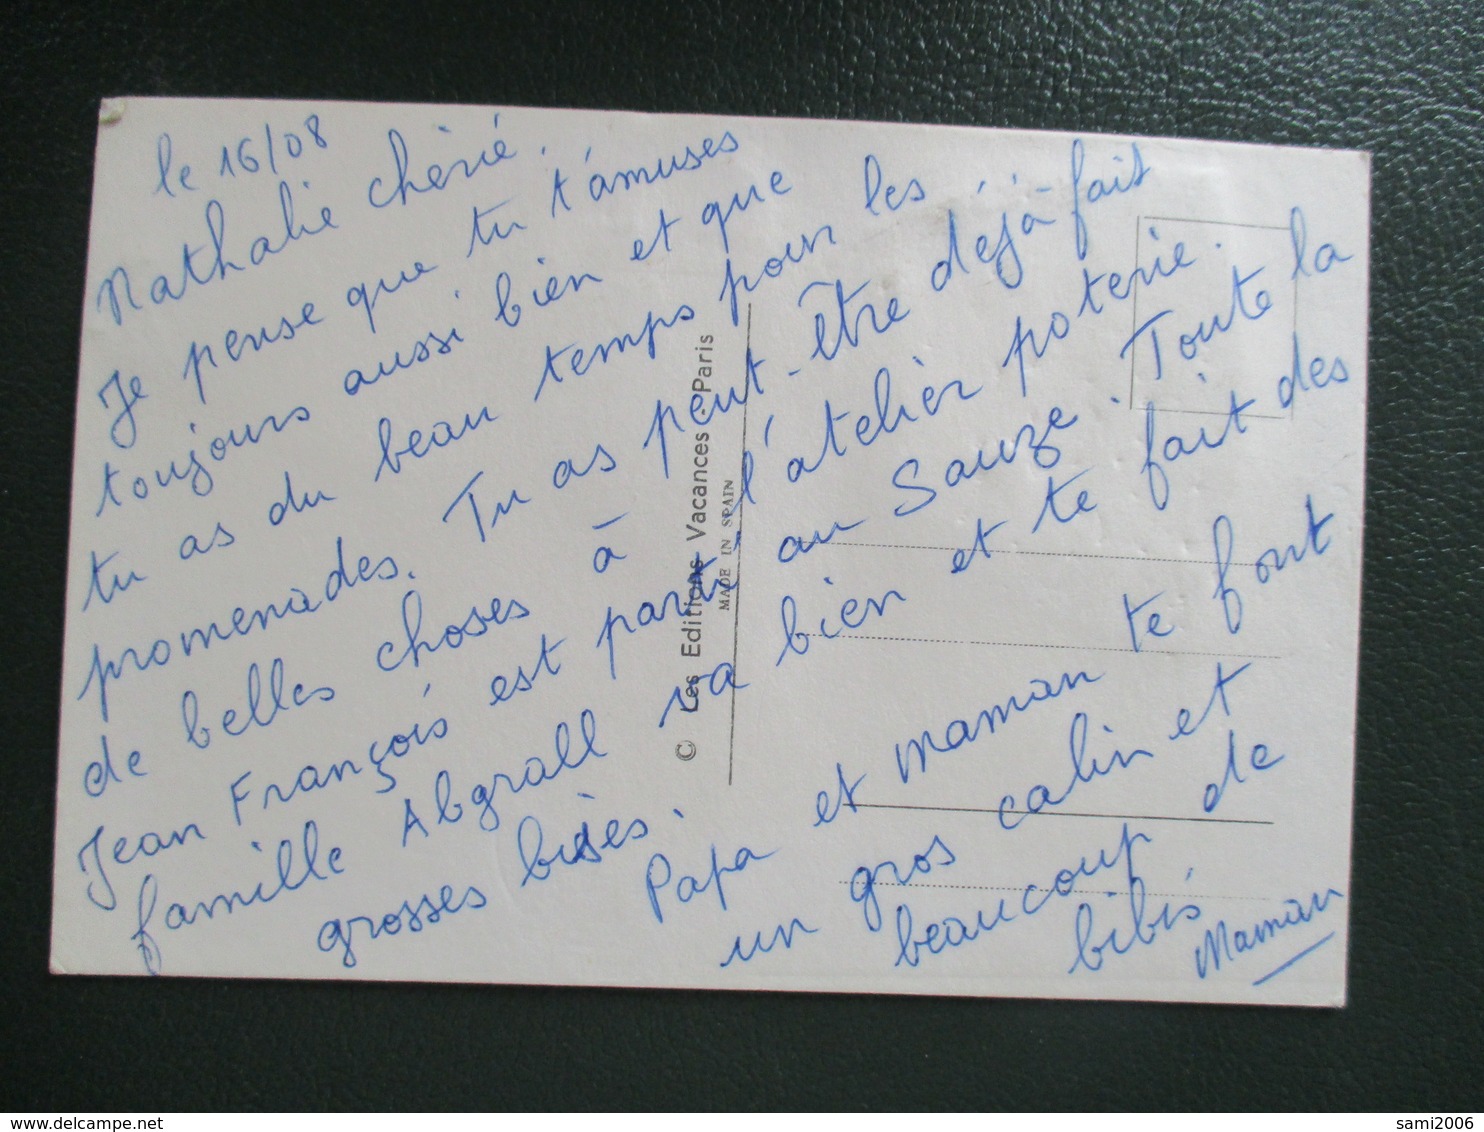 le 16/08
Nathalie chérie,
Je pense que tu t'amuses
toujours aussi bien et que
tu as du beau temps pour les
promenades. Tu as peut-être déjà fait
de belles choses à l'atelier poterie.
Jean François est parti au Sauze. Toute la
famille Abgrall va bien et te fait des
grosses bises.
Papa et maman te font
un gros calin et
beaucoup de
bibis
Maman
© Les Editions Vacances - Paris
MADE IN SPAIN
sami2006